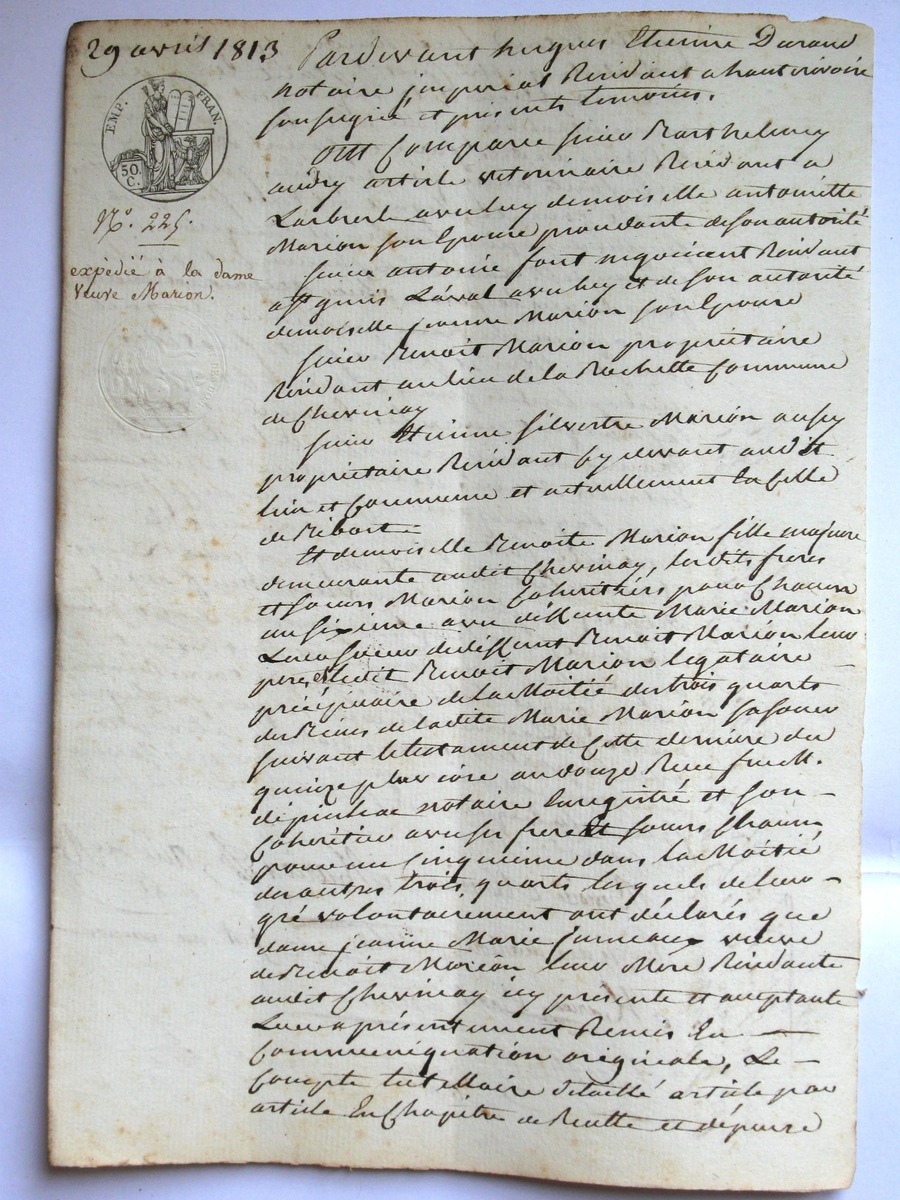 29 avril 1813
EMP. FRAN.
50. C.
N.º 225.
expédié à la dame
veuve Marion.
Pardevant hugues Etienne Durand
notaire jmperial Rézidant a hauterivoire
soussigné et présents temoins.
Ont Comparu sieur Barthelemy
audry artiste vetérinaire Rézidant a
Larbresle avec luy demoiselle antoinette
Marion son Epouse procedante de son autorité
sieur antoine font négociant Rézidant
a Laval avec luy et de son autorité
demoiselle jeanne Marion son Epouse
sieur Benoit Marion propriétaire
Rézidant au lieu de la Rochette Commune
de Chevinay
sieur Etienne silvestre Marion aussy
propriétaire Rézidant cy devant audit
lieu et Commune et actuellement la
de
Et demoiselle Benoite Marion fille majeure
demeurante audit Chevinay, lesdits freres
et soeurs Marion Cohéritiers pour Chacun
un sixieme avec deffunte Marie Marion
Leur soeur de deffunt Benoit Marion leur
pere, et ledit Benoit Marion legataire
précipuaire de la Moitié des trois quarts
des Biens de ladite Marie Marion sa soeur
suivant le testament de Cette derniere du
quinze pluviose an douze Reçu
notaire Enregistré et son
Cohéritier avec ses frere Et soeurs Chacun
pour un Cinquieme dans la Moitié
des autres trois quarts lesquels de leur
gré volontairement ont déclarés que
dame jeanne Marie veuve
de Benoit Marion leur Mere Rézidante
audit Chevinay icy présente et acceptante
Leur a présentement Remis En
Communiquation originale, Le
Compte tutellaire détaillé article par
article En Chapitre de Recette et dépense